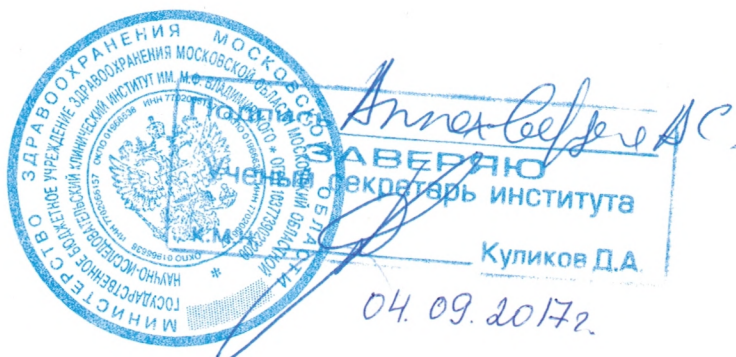 МИНИСТЕРСТВО ЗДРАВООХРАНЕНИЯ МОСКОВСКОЙ ОБЛАСТИ
ГОСУДАРСТВЕННОЕ БЮДЖЕТНОЕ УЧРЕЖДЕНИЕ ЗДРАВООХРАНЕНИЯ МОСКОВСКОЙ ОБЛАСТИ МОСКОВСКИЙ ОБЛАСТНОЙ
НАУЧНО-ИССЛЕДОВАТЕЛЬСКИЙ КЛИНИЧЕСКИЙ ИНСТИТУТ ИМ. М.Ф. ВЛАДИМИРСКОГО
Подпись
ЗАВЕРЯЮ
Ученый секретарь института
к.м.н.
Куликов Д.А.
04.09.2017г.